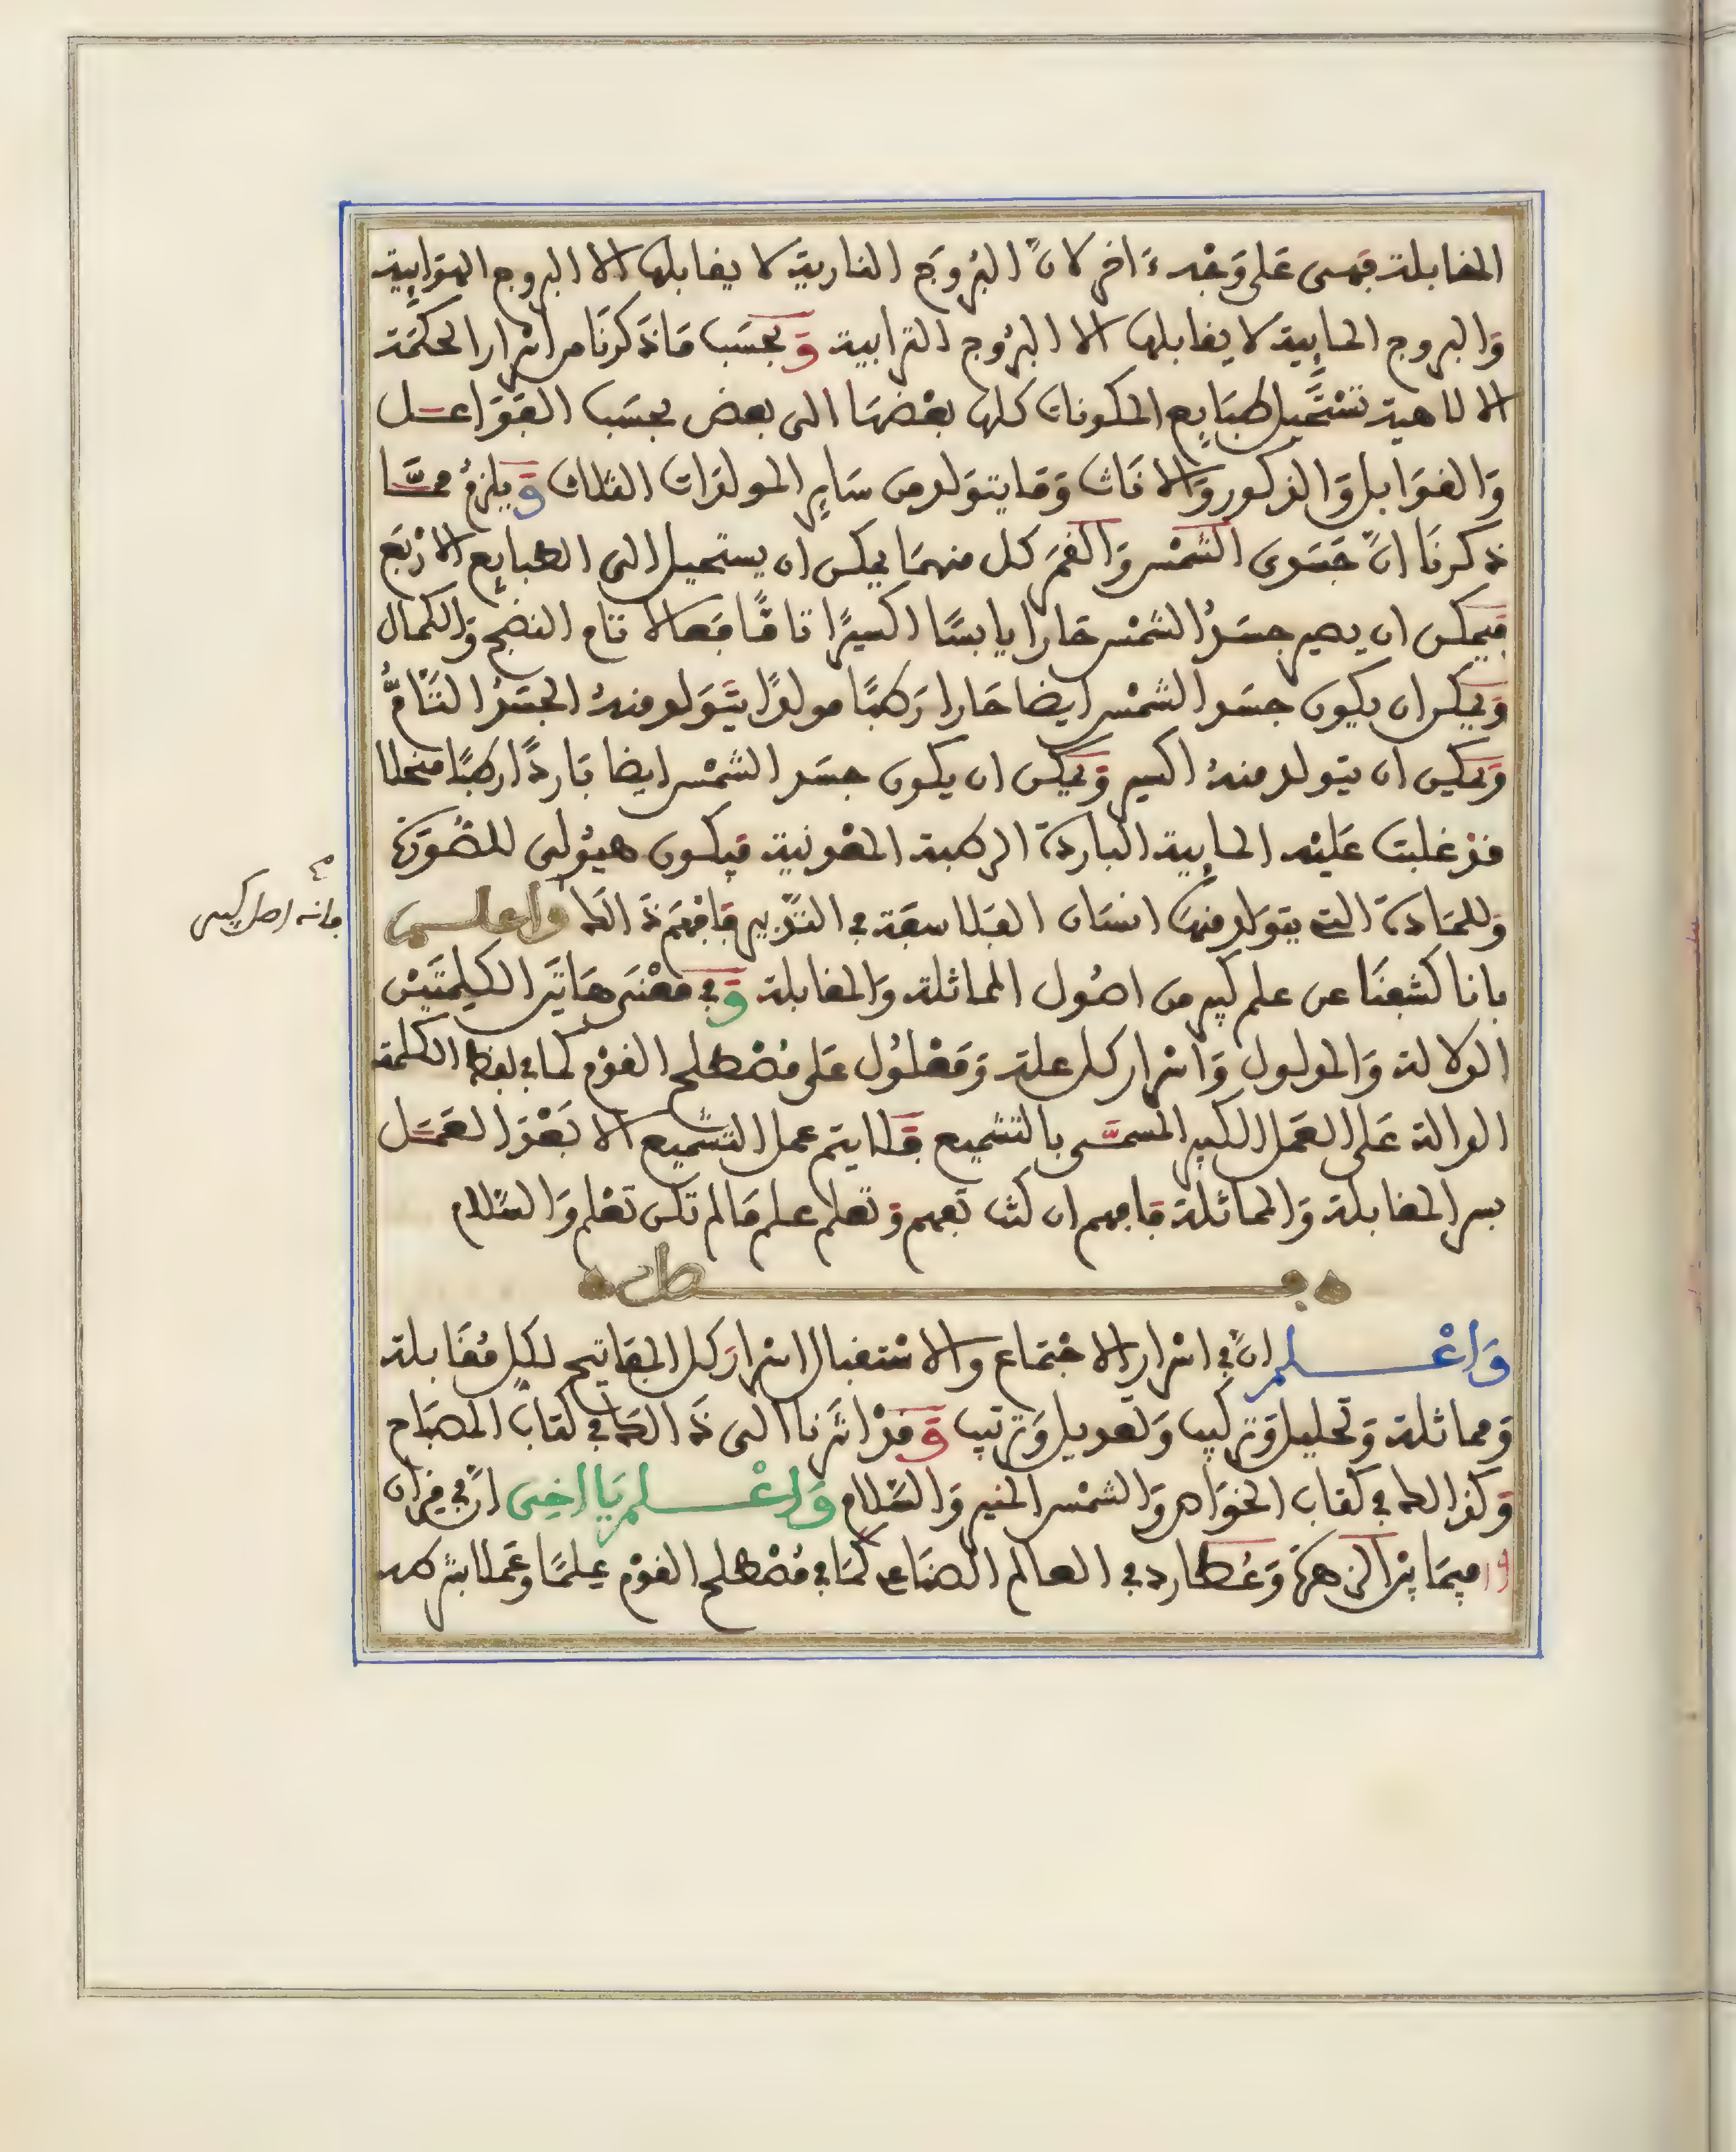 المقابلة فهى على وَجْه ءَاخر لانّ البُروج النارية لا يقابلها الا البروج الهوَايية
وَالبروج المايية لا يقابلها الا البرُوج الترابية وَبحسَب مَا ذَكرنَا من اسْرار الحكمَة
الالاهية تسْتَحيل طبَايع المكونات كلها بعْضهَا الى بعض بحسَب الفوَاعـل
وَالقوَابل وَالذكور وَالانَاث وَمَا يتولد من سَاير المولدَات الثلاث وَيلزمُ ممَّـا
ذكرنَا انّ جَسَدى الشمْس وَالقمَر كل منهمَا يمكن ان يستحيل الى الطبايع الارْبَع
فيمكن ان يصير جسَدُ الشمْس حَارا يابسًا اكسيرًا تامًّا فعالا تام النضج وَالكمال
وَيمكن ان يكون جسَد الشمْس ايضا حَارا رَطبًا مولدًا يتَولد منهُ الجسَدُ التَّامُّ
وَيمكن ان يتولد منهُ اكسير وَيمكن ان يكون جسَد الشمْس ايضا بَاردًا رطبًا منحلا
قدْ غلبت عَليْه المايية البَاردَة الرطبة المعْدنية فيكون هيُولى للصُّورَة
وَللمَادة التى يتوَلد منهَا انسَان الفلاسفَة فى التدْبير فَافهَم ذَالك واعلـم
بانا كشفنَا عن علم كبير من اصُول المماثلة وَالمقابلة وَفى معْنَى هَاتَين الكلِمتَيْن
الدلالة وَالمدلول وَاسْرار كل علة وَمَعْلُول عَلى مُصْطلح القوْم كما فى لفظ الكلمة
الدالة عَلى العَمَل الكبير المسمَّـى بالتشميع فَلا يتم عمل التشميع الا بَعْدَ العَمَـل
بسر المقابلة وَالمماثلة فَافهم ان كنت تفهم وَتعْلم علم مَا لم تكن تعْلم وَالسَّلام
فصل
وَاعْـلم انّ فى اسْرار الاجْتمَاع والاسْتقبال اسْرارَ كل المفَاتيح لكل مُقَابلة
وَمماثلة وَتحْليل وَتركيب وَتعديل وَترتيب وَقدْ اشرنا الى ذَالك فى كتاب المصبَاح
وَكذالك فى كتاب الخوَاص وَالشمْس المنير وَالسَّلام وَاعْـلم يَا اخى انّ فى قِرَان
فيمَا بيْن الزهَرَة وَعُطَارد فى العالم الصنَاعى كمَا فى مُصْطلح القوْم عِلمًا وَعَملا بشرطه
فانه اصل كبير